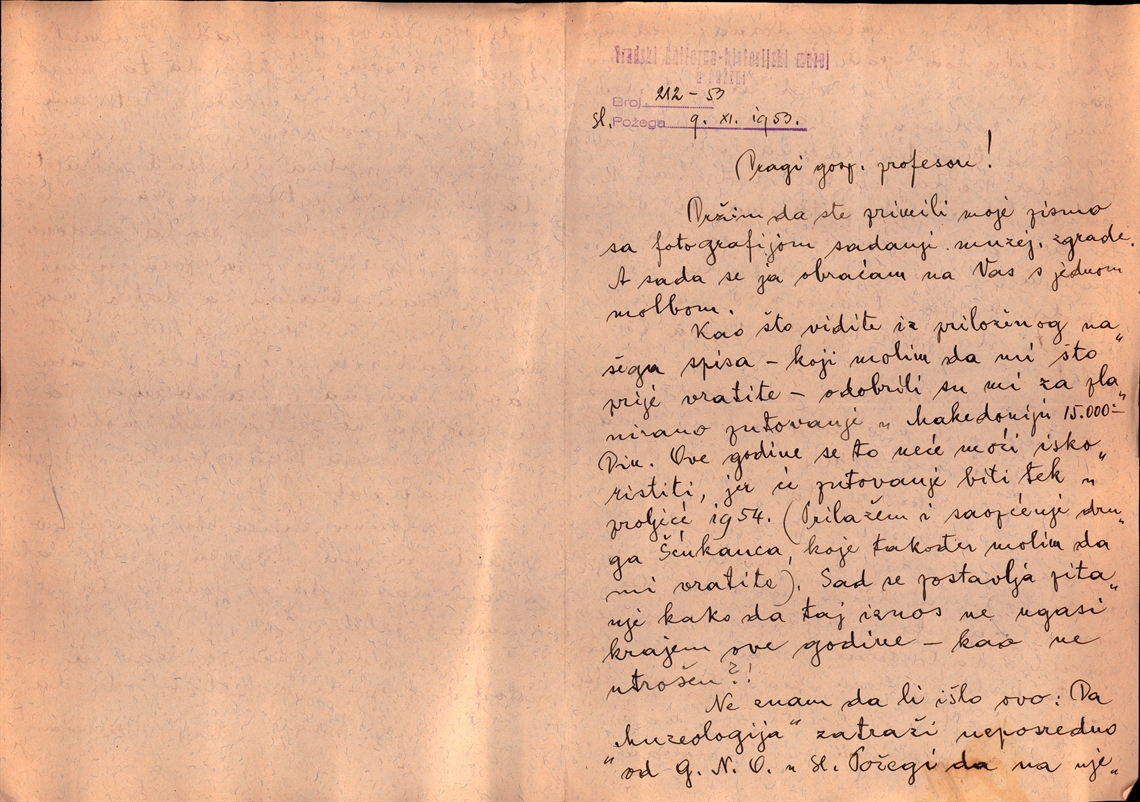 Gradski kulturno-historijski muzej
u Požegi
Broj 212 – 53
Sl. Požega 9. XI. 1953.
Dragi gosp. profesore!
Držim da ste primili moje pismo
sa fotografijom sadanji muzej. zgrade.
A sada se ja obraćam na Vas s jednom
molbom.
Kao što vidite iz priloženog na„
šega spisa – koji molim da mi što
prije vratite – odobrili su mi za pla„
nirano putovanje u Makedoniju 15.000.–
Din. Ove godine se to neće moći isko„
ristiti, jer će putovanje biti tek u
proljeće 1954. (Prilažem i saopćenje dru„
ga Šćukanca, koje također molim da
mi vratite). Sad se postavlja pita„
nje kako da taj iznos ne ugasi
krajem ove godine – kao ne
utrošen?!
Ne znam da li išlo ovo: Da
„Muzeologija“ zatraži neposredno
„od G. N. O. u Sl. Požegi da na nje„